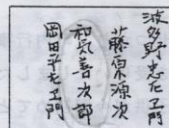 波多野忠左ヱ門
藤原源次
和気善次郎
岡田平左ヱ門